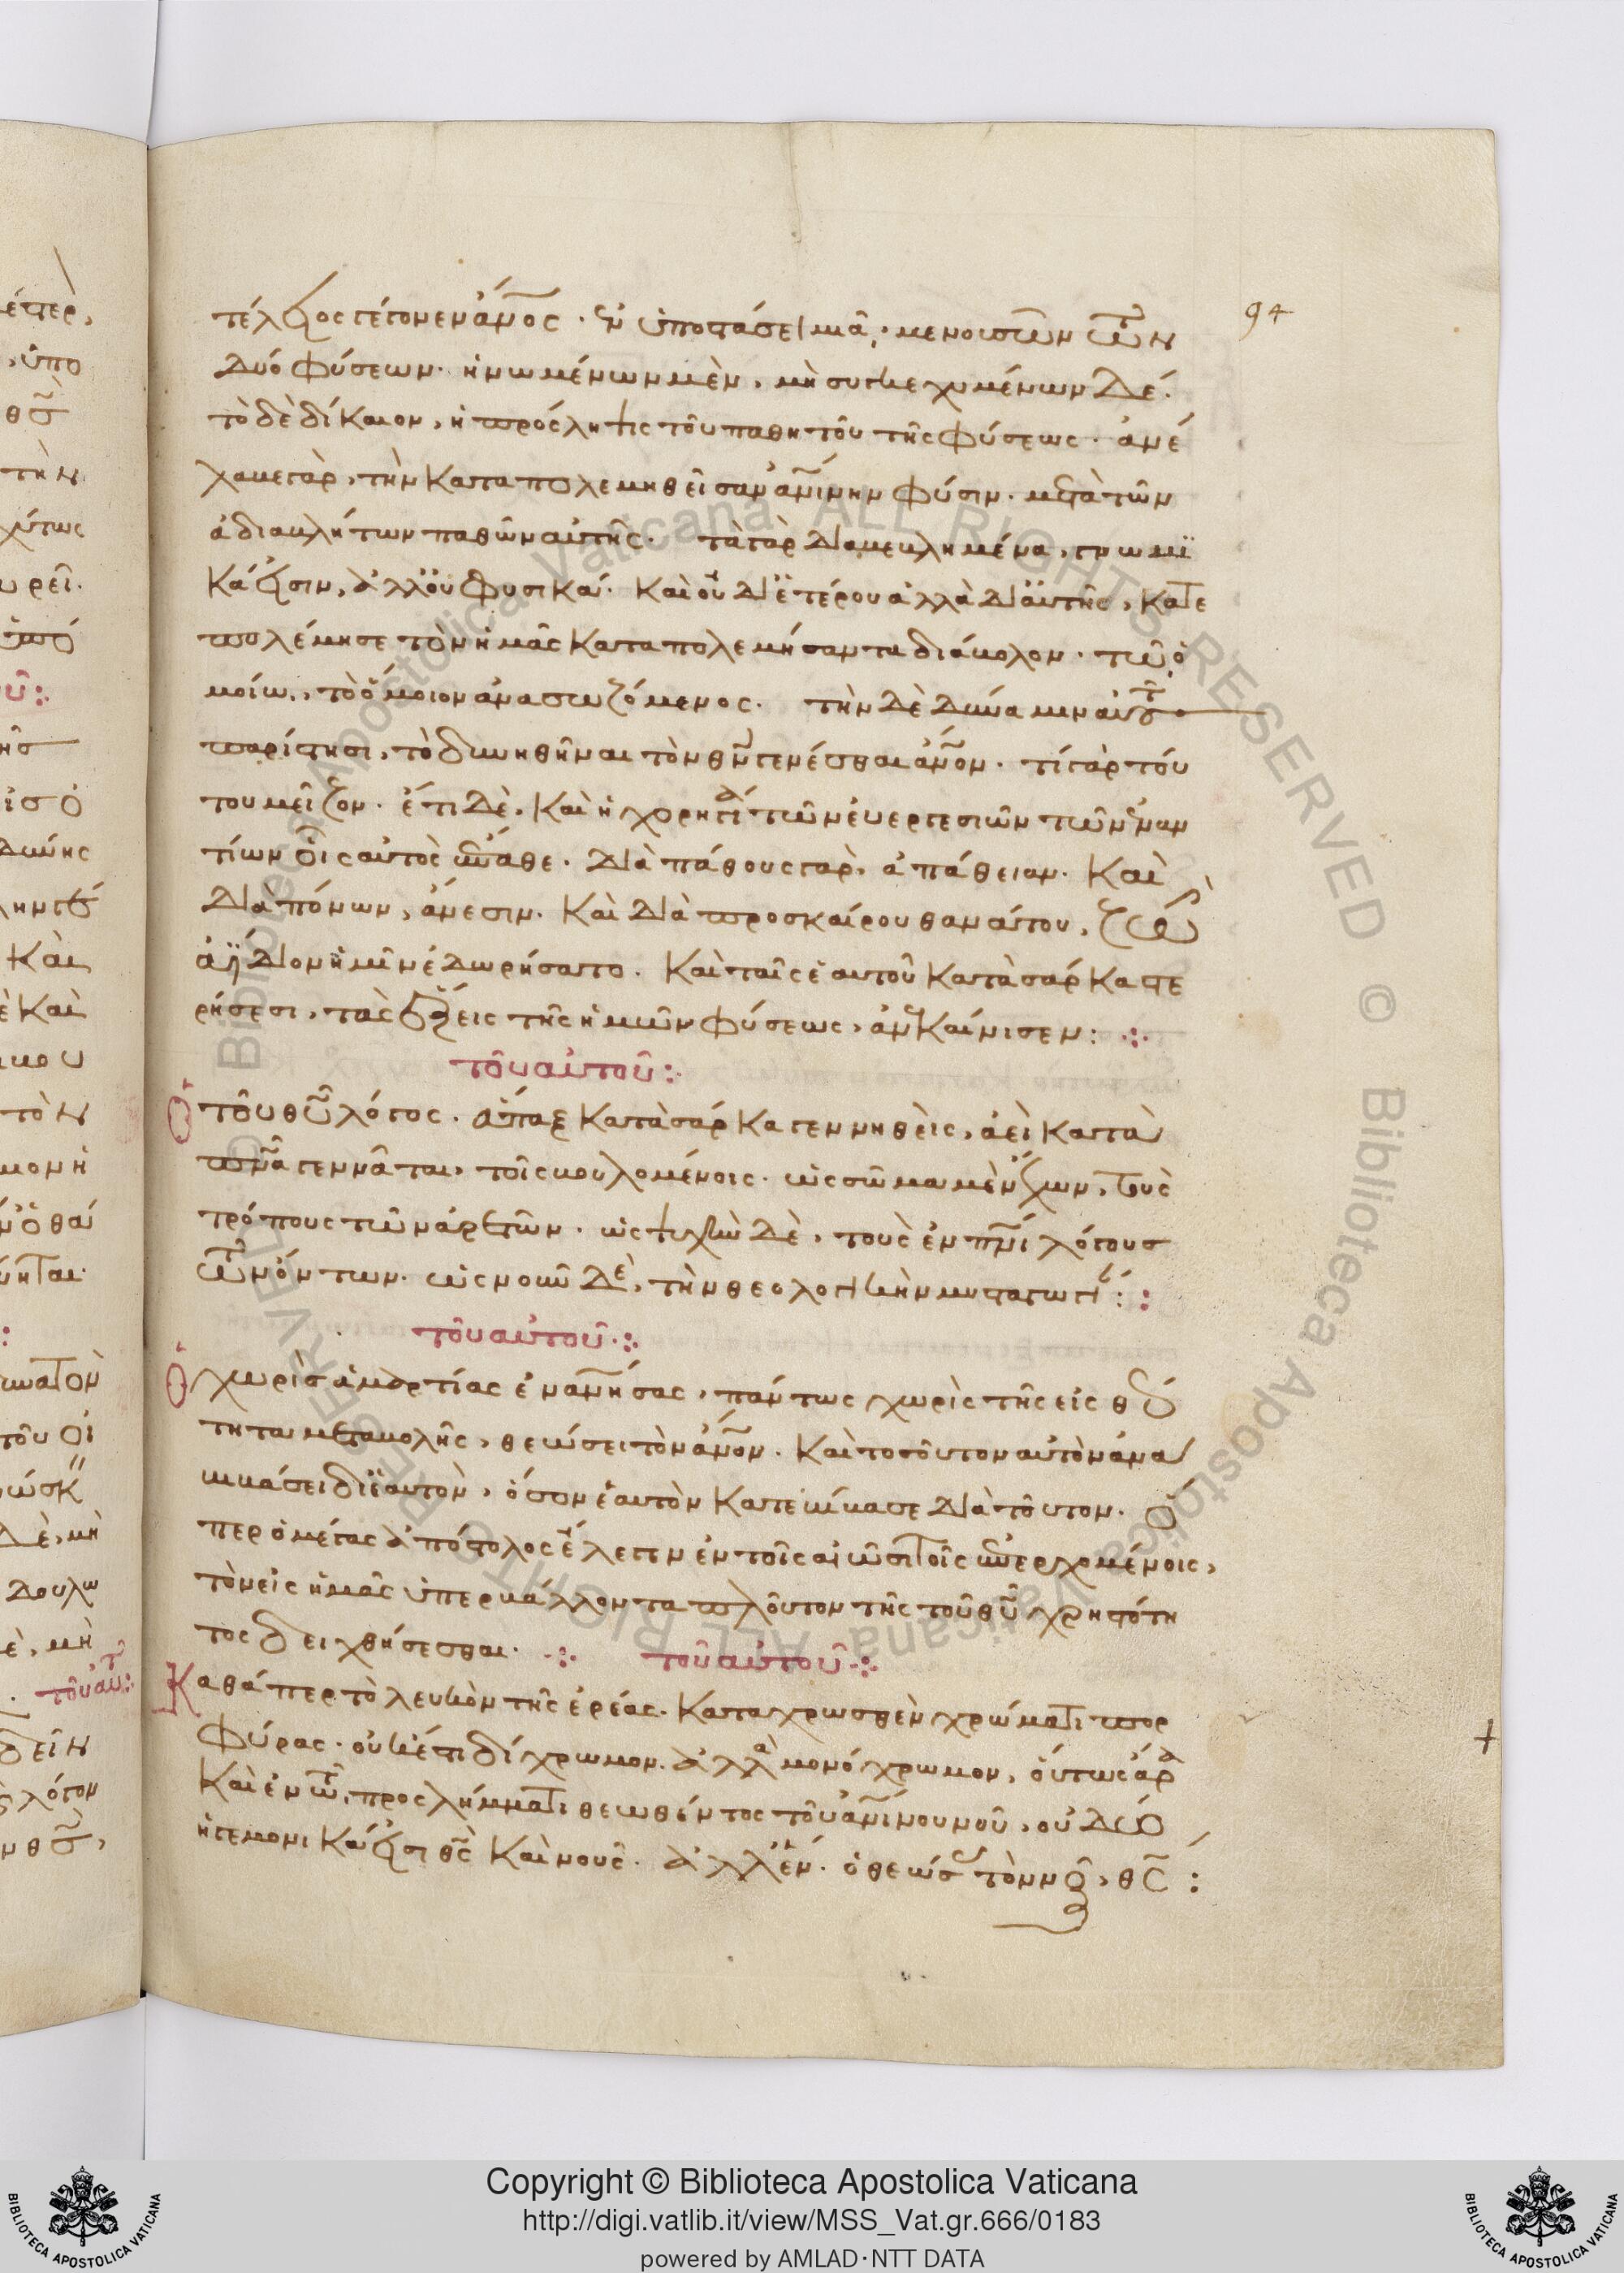 94
τέλειος γέγονεν ἄνος · ἐν ὑποστάσει μιᾷ · μενουσῶν τῶν
δύο φύσεων · ἡνωμένων μὲν, μὴ συγκεχυμένων δέ ·
τὸ δὲ δίκαιον, ἡ πρόσληψις τοῦ παθητοῦ τῆς φύσεως · ἀνέ
λαβε γὰρ, τὴν καταπολεμηθεῖσαν ἀνίνην φύσιν · μετὰ τῶν
ἀδιαβλήτων παθῶν αὐτῆς · τὰ γὰρ διαβεβλημένα, γνωμι
κά εἰσιν, ἀλλ' οὐ φυσικά · καὶ οὐ δι' ἑτέρου ἀλλὰ δι' αὐτῆς, κατε
πολέμησε τὸν ἡμᾶς καταπολεμήσαντα διάβολον · τῷ ὁ
μοίῳ, τὸ ὅμοιον ἀνασωζόμενος · τὴν δὲ δύναμιν αὐτοῦ
παρίστησι, τὸ δυνηθῆναι τὸν θν γενέσθαι ἄνον · τί γὰρ τού
του μεῖζον · ἔτι δὲ, καὶ ἡ χορηγία τῶν εὐεργεσιῶν τῶν ἐναν
τίων οἷς αὐτὸς ἔπαθε · διὰ πάθους γὰρ, ἀπάθειαν · καὶ
διὰ πόνων, ἄνεσιν · καὶ διὰ προσκαίρου θανάτου, ζωὴν
ἀΐδιον ἡμῖν ἐδωρήσατο · καὶ ταῖς ἑαυτοῦ κατὰ σάρκα στε
ρήσεσι, τὰς ἕξεις τῆς ἡμῶν φύσεως, ἀνεκαίνισεν :
τοῦ αὐτοῦ :
Ὁ τοῦ θυ λόγος · ἅπαξ κατὰ σάρκα γεννηθεὶς, ἀεὶ κατὰ
πνα γεννᾶται, τοῖς βουλομένοις · ὡς σῶμα μὲν ἔχων, τοὺς
τρόπους τῶν ἀρετῶν · ὡς ψυχὴν δὲ, τοὺς ἐν πνι λόγους
τῶν ὄντων · ὡς νοῦν δὲ, τὴν θεολογικὴν μυσταγωγί :
τοῦ αὐτοῦ :
Ὁ χωρὶς ἁμαρτίας ἐνανήσας, πάντως χωρὶς τῆς εἰς θεό
τητα μεταβολῆς, θεώσει τὸν ἄνον · καὶ τοσοῦτον αὐτὸν ἀνα
βιβάσει δι' ἑαυτὸν, ὅσον ἑαυτὸν κατεβίβασε διὰ τοῦτον · ὅ
περ ὁ μέγας ἀπόστολος ἔλεγεν ἐν τοῖς αἰῶσι τοῖς ἐπερχομένοις,
τὸν εἰς ἡμᾶς ὑπερβάλλοντα πλοῦτον τῆς τοῦ θυ χρηστότη
τος δειχθήσεσθαι · τοῦ αὐτοῦ
Καθάπερ τὸ λευκὸν τῆς ἐρέας · καταχρωσθὲν χρώματι πορ
φύρας · οὐκέτι δίχρωμον · ἀλλὰ μονόχρωμον, οὕτως ἄρα
καὶ ἐν τῷ προςλήμματι θεωθέντος τοῦ ἀνίνου νοῦ, οὐ δύο
ἡγεμονικά εἰσι θς καὶ νοῦς · ἀλλ' ἕν · ὁ θεώσας τὸν νοῦ, θς :
τοῦ αὐ :
Copyright © Biblioteca Apostolica Vaticana
http://digi.vatlib.it/view/MSS_Vat.gr.666/0183
powered by AMLAD·NTT DATA
BIBLIOTECA APOSTOLICA VATICANA
BIBLIOTECA APOSTOLICA VATICANA